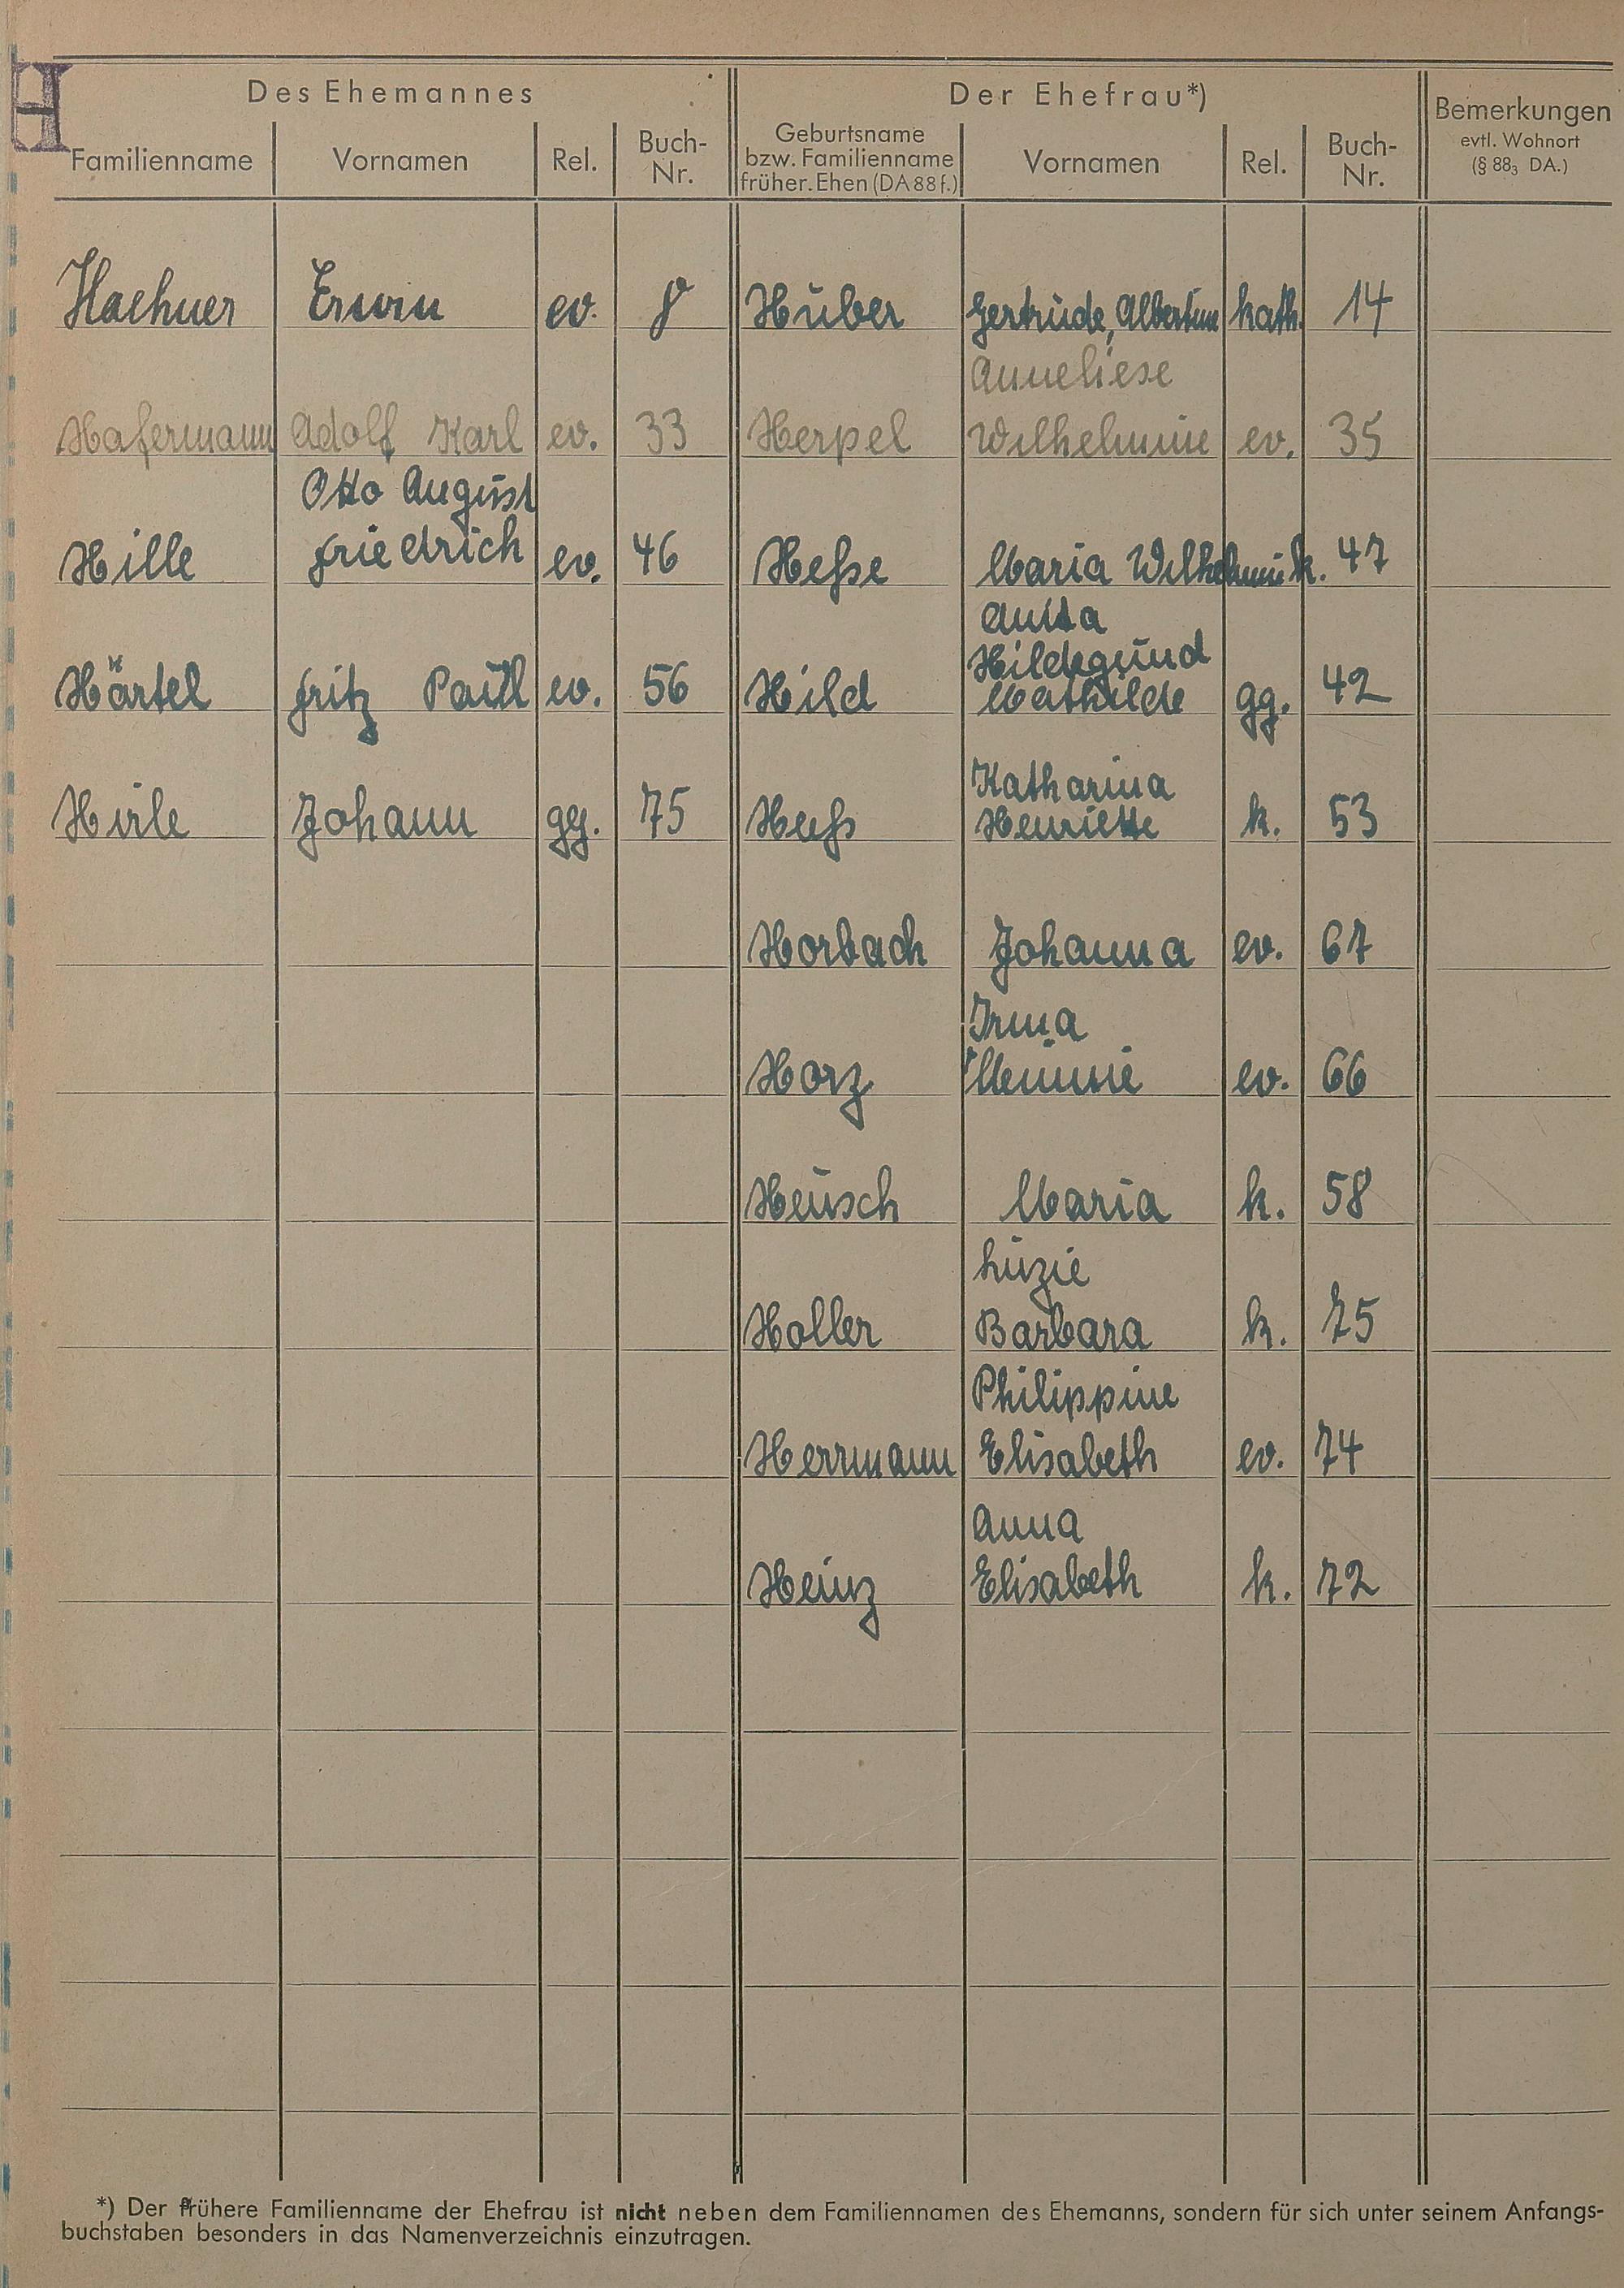 H
Des Ehemannes Der Ehefrau*) Bemerkungen
evtl. Wohnort
(§ 88₃ DA.)
Familienname Vornamen Rel. Buch-Nr. Geburtsname bzw. Familienname früher. Ehen (DA 88 f.) Vornamen Rel. Buch-Nr.
Haehner Erwin ev. 8 Huber Gertrude, Albertine kath. 14
Anneliese
Hafermann Adolf Karl ev. 33 Herpel Wilhelmine ev. 35
Otto August
Hille Friedrich ev. 46 Heße Maria Wilhelmine k. 47
Anita
Hildegund
Härtel Fritz Paul ev. 56 Hild Mathilde gg. 42
Katharina
Hirle Johann gg. 75 Heß Henriette k. 53
Horbach Johanna ev. 67
Irma
Horz Minnie ev. 66
Heusch Maria k. 58
Luzie
Holler Barbara k. 75
Philippine
Herrmann Elisabeth ev. 74
Anna
Heinz Elisabeth k. 72
*) Der frühere Familienname der Ehefrau ist nicht neben dem Familiennamen des Ehemanns, sondern für sich unter seinem Anfangs-
buchstaben besonders in das Namenverzeichnis einzutragen.